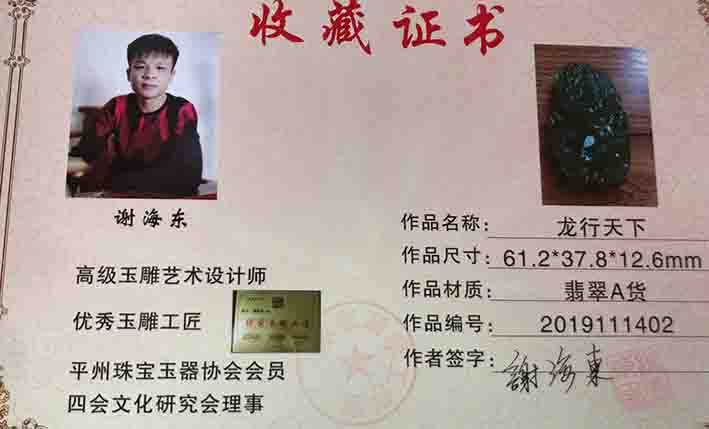 收藏证书
谢海东
高级玉雕艺术设计师
优秀玉雕工匠
平州珠宝玉器协会会员
四会文化研究会理事
作品名称: 龙行天下
作品尺寸: 61.2*37.8*12.6mm
作品材质: 翡翠A货
作品编号: 2019111402
作者签字: 謝海東